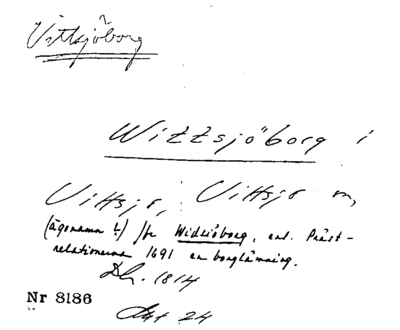 Vittsjöborg
Wittsjöborg i
Vittsjö, Vittsjö
(ägonamn?) Widsiöborg, enl. Präst-
relationerna 1691 en borglämning.
1814
Nr 8186
24